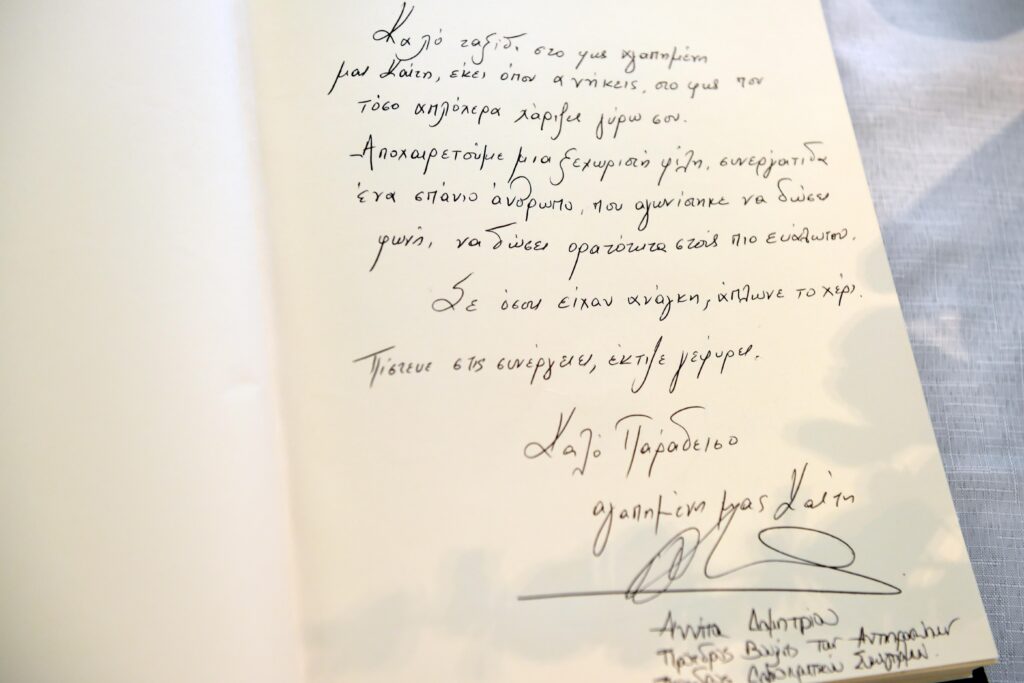 Καλό ταξίδι στο φως αγαπημένη
μας Καίτη, εκεί όπου ανήκεις, στο φως που
τόσο απλόχερα χάριζες γύρω σου.
Αποχαιρετούμε μια ξεχωριστή φίλη, συνεργάτιδα
ένα σπάνιο άνθρωπο, που αγωνίστηκε να δώσει
φωνή, να δώσει ορατότητα στους πιο ευάλωτους.
Σε όσους είχαν ανάγκη, άπλωνε το χέρι.
Πίστευε στις συνέργειες, έκτιζε γέφυρες.
Καλό Παράδεισο
αγαπημένη μας Καίτη
Αννίτα Δημητρίου
Πρόεδρος Βουλής των Αντιπροσώπων
Πρόεδρος Δημοκρατικού Συναγερμού